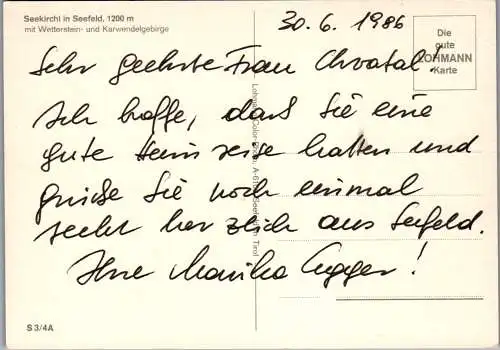 Seekirchl in Seefeld, 1200 m
mit Wetterstein- und Karwendelgebirge
30. 6. 1986
Die
gute
LOHMANN
Karte
Sehr geehrte Frau Chvatal!
Ich hoffe, dass Sie eine
gute Heimreise hatten und
grüße Sie noch einmal
recht herzlich aus Seefeld.
Ihre Monika Egger!
S 3/4A